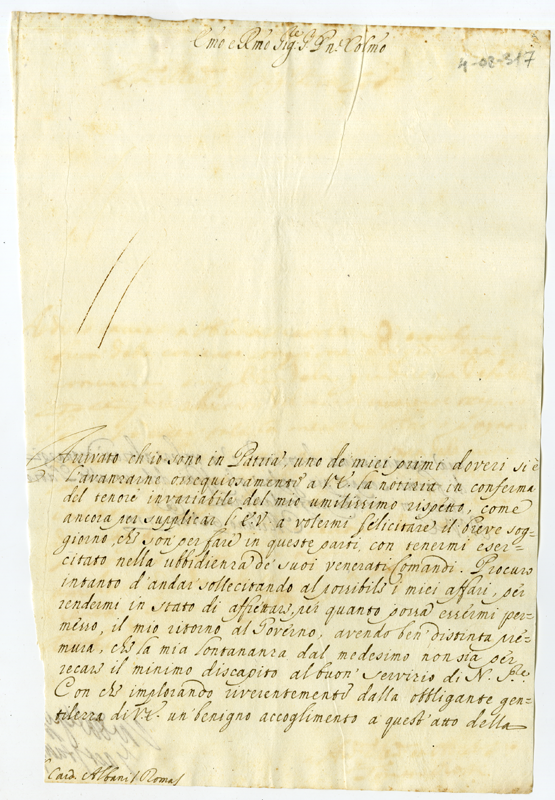 Emo e Rmo Sigre Pne Colmo
4-02-317
Arrivato ch'io sono in Patria, uno de' miei primi doveri si è
l'avanzarne ossequiosamente a V.E. la notizia in conferma
del tenore invariabile del mio umilissimo rispetto, come
ancora per supplicar l'E.V. a volermi felicitare il breve sog=
giorno, che son per fare in queste parti, con tenermi eser=
citato nella ubbidienza de' suoi venerati Comandi. Procuro
intanto d'andar sollecitando al possibile i miei affari, per
rendermi in stato di affrettare, per quanto possa essermi per=
messo, il mio ritorno al Governo, avendo ben distinta pre=
mura, che la mia lontananza dal medesimo non sia per
recare il minimo discapito al buon servizio di N. Sre.
Con che implorando riverentemente dalla obbligante gen=
tilezza di V.E. un benigno accoglimento a quest'atto della
Card. Albani / Roma /